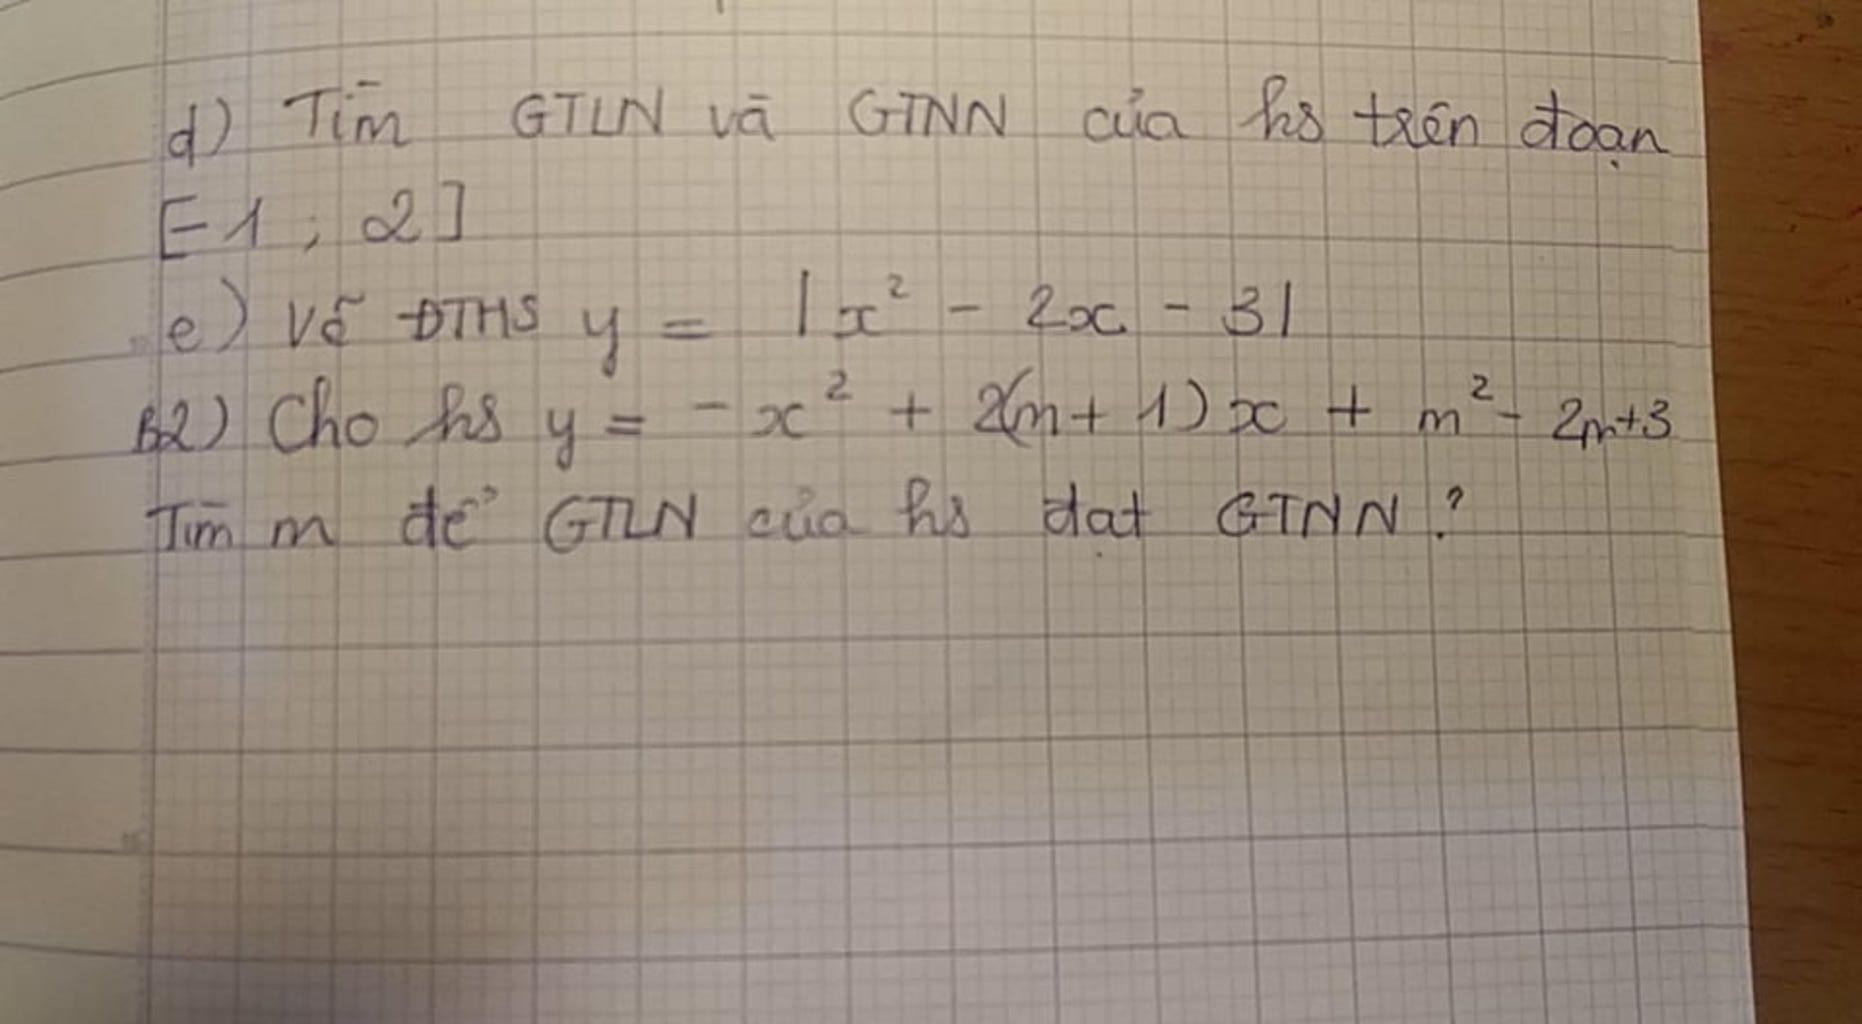 d) Tìm GTLN và GTNN của hs trên đoạn
[-1 ; 2]
e) Vẽ ĐTHS y = |x² - 2x - 3|
B2) Cho hs y = -x² + 2(m+1)x + m² - 2m+3
Tìm m để GTLN của hs đạt GTNN ?